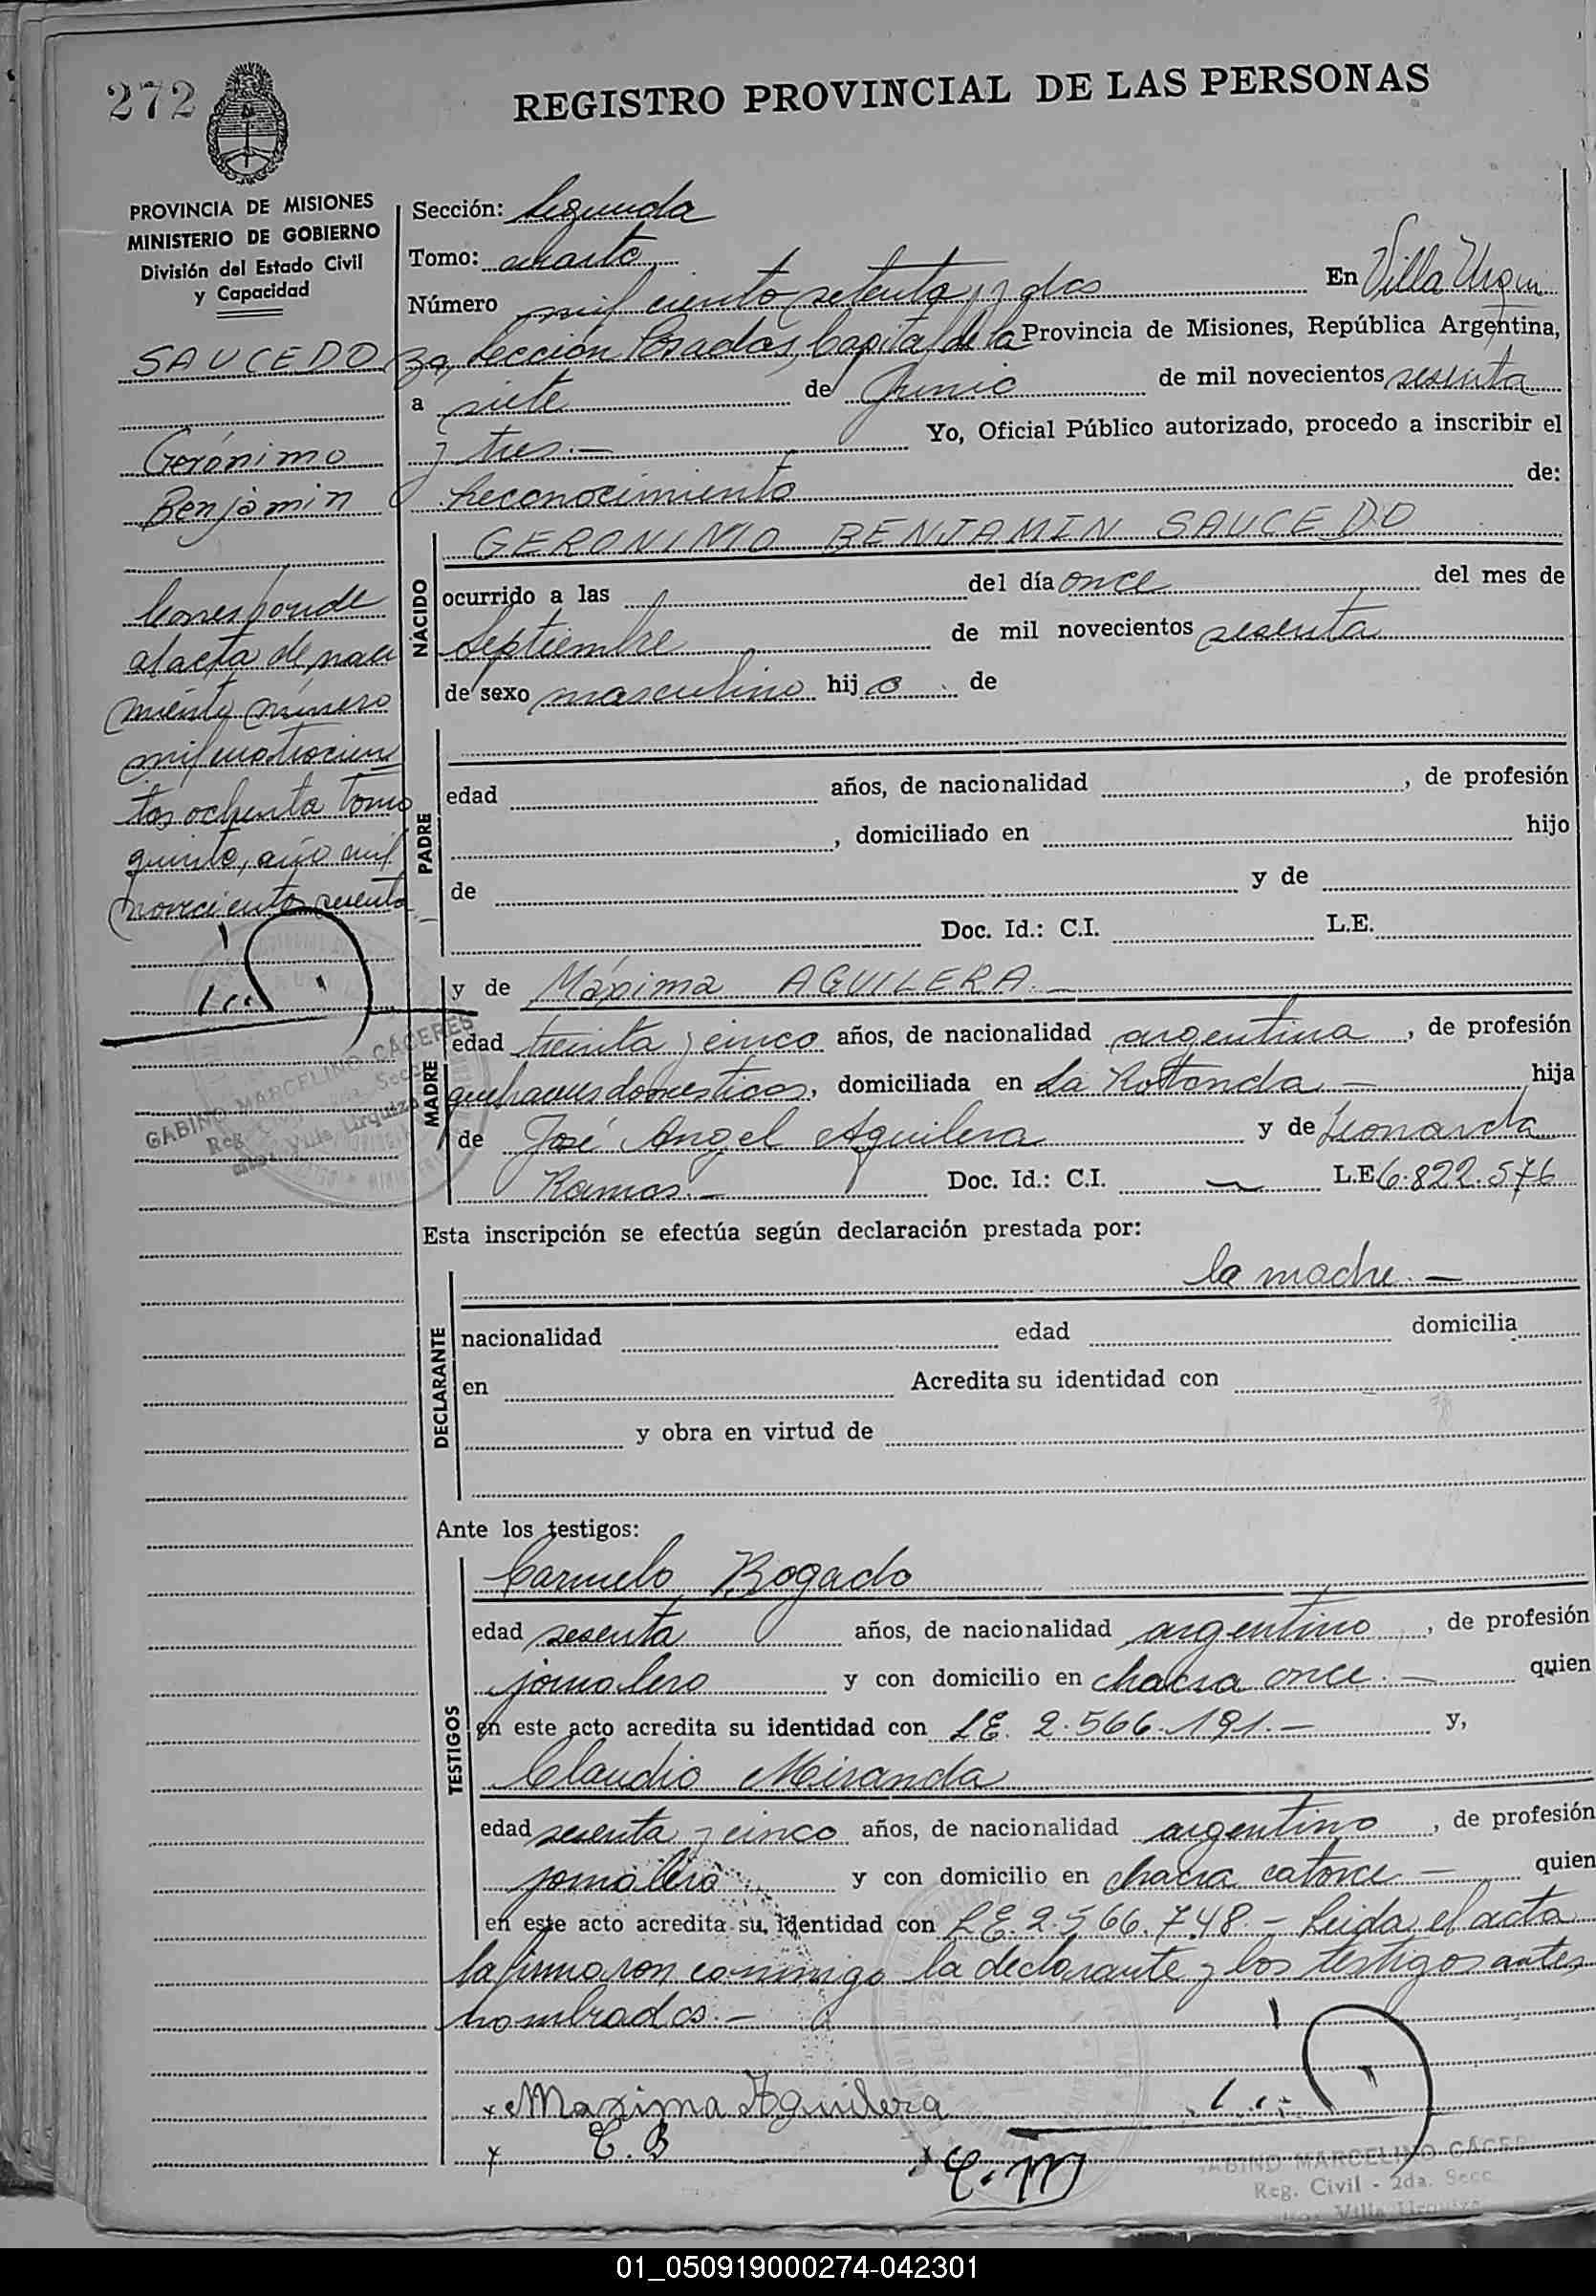 272
REGISTRO PROVINCIAL DE LAS PERSONAS
PROVINCIA DE MISIONES
MINISTERIO DE GOBIERNO
División del Estado Civil
y Capacidad
SAUCEDO
Gerónimo
Benjamin
Corresponde
al acta de naci
miento número
mil cuatrocien
tos ochenta Tomo
quinto, año mil
novecientos sesenta
GABINO MARCELINO CÁCERES
Reg. Civil - 2da. Secc.
Villa Urquiza
Sección: Segunda
Tomo: cuarto
Número mil ciento setenta y dos En Villa Urqui
za, Sección Posadas, Capital de la Provincia de Misiones, República Argentina,
a siete de Junio de mil novecientos sesenta
y tres.— Yo, Oficial Público autorizado, procedo a inscribir el
Reconocimiento de:
NACIDO
GERONIMO BENJAMIN SAUCEDO
ocurrido a las del día once del mes de
Septiembre de mil novecientos sesenta
de sexo masculino hijo de
PADRE
edad años, de nacionalidad , de profesión
, domiciliado en hijo
de y de
Doc. Id.: C.I. L.E.
MADRE
y de Máxima AGUILERA.—
edad treinta y cinco años, de nacionalidad argentina, de profesión
quehaceres domesticos, domiciliada en La Rotonda — hija
de José Angel Aguilera y de Leonarda
Ramos.— Doc. Id.: C.I. — L.E 6.822.576
Esta inscripción se efectúa según declaración prestada por:
DECLARANTE
la madre.—
nacionalidad edad domicilia
en Acredita su identidad con
y obra en virtud de
Ante los testigos:
TESTIGOS
Carmelo Bogado
edad sesenta años, de nacionalidad argentino, de profesión
jornalero y con domicilio en chacra once.— quien
en este acto acredita su identidad con L.E. 2.566.191.— y,
Claudio Miranda
edad sesenta y cinco años, de nacionalidad argentino, de profesión
jornalero y con domicilio en chacra catorce — quien
en este acto acredita su identidad con L.E. 2.566.748.— Leida el acta
la firmaron conmigo la declarante y los testigos antes
nombrados.—
x Maxima Aguilera
x C. B
x C. M
GABINO MARCELINO CÁCER
Reg. Civil - 2da. Secc
Villa Urquiza
01_050919000274-042301